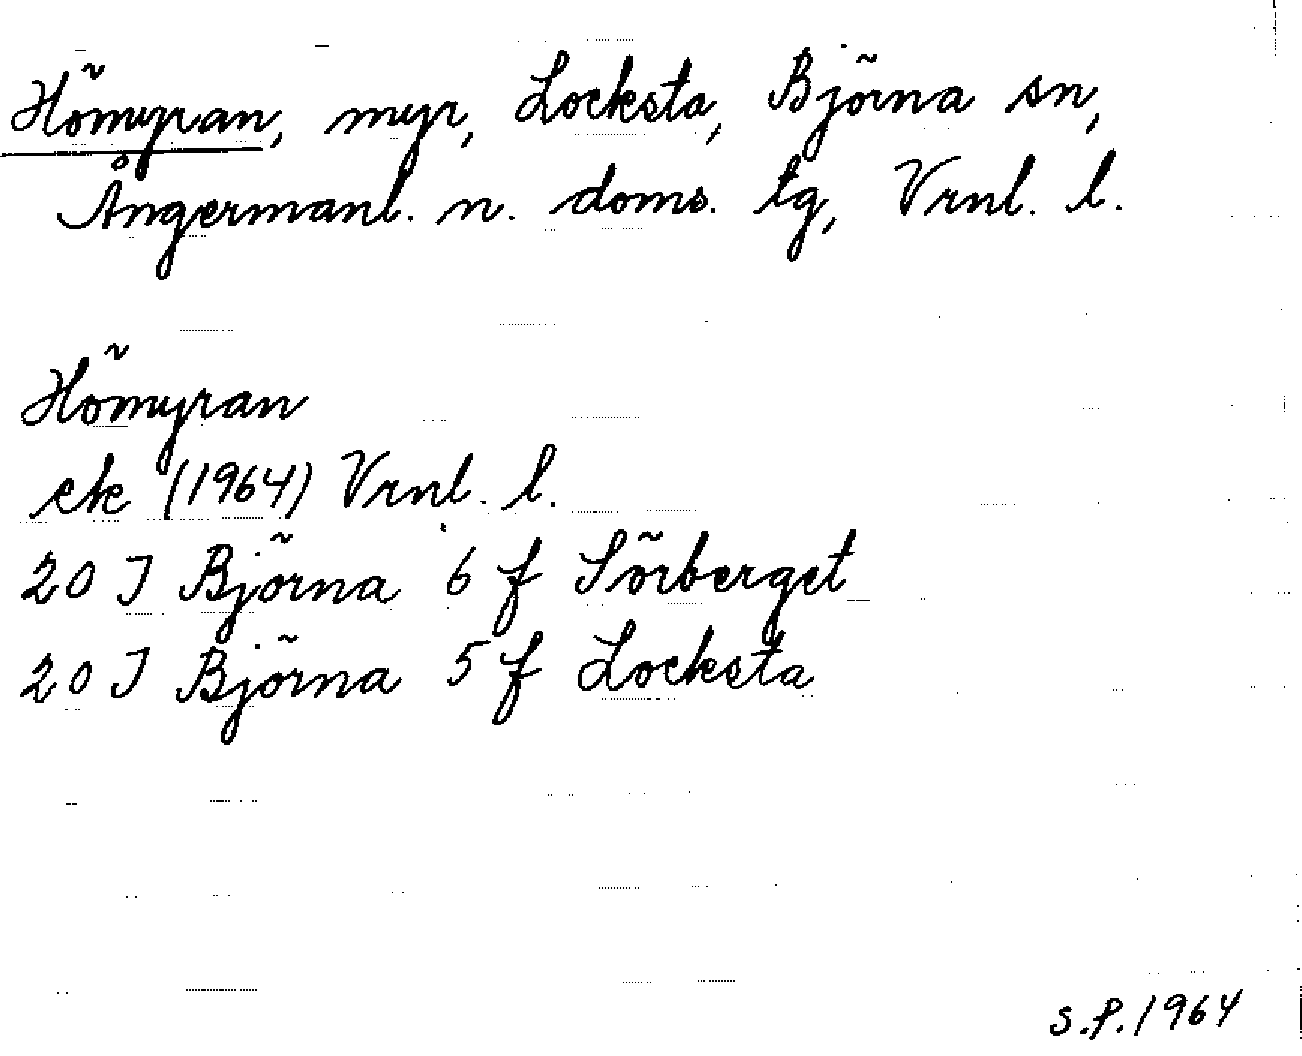 Hömyran, myr, Locksta, Björna sn,
Ångermanl. n. doms. tg, Vrnl. l.
Hömyran
ek (1964) Vrnl. l.
20 J Björna 6 f Sörberget
20 J Björna 5 f Locksta
S.P. 1964